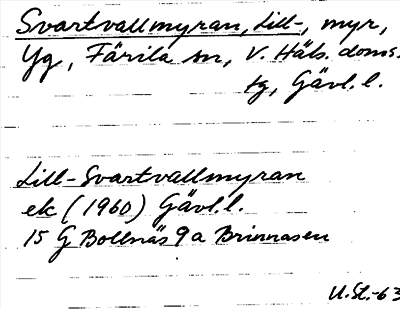 Svartvallmyran, Lill-, myr,
Yg, Färila sn, V. Häls. doms.
tg, Gävl. l.
Lill-Svartvallmyran
ek (1960) Gävl. l.
15 G Bollnäs 9a Brinnåsen
U.St.-63